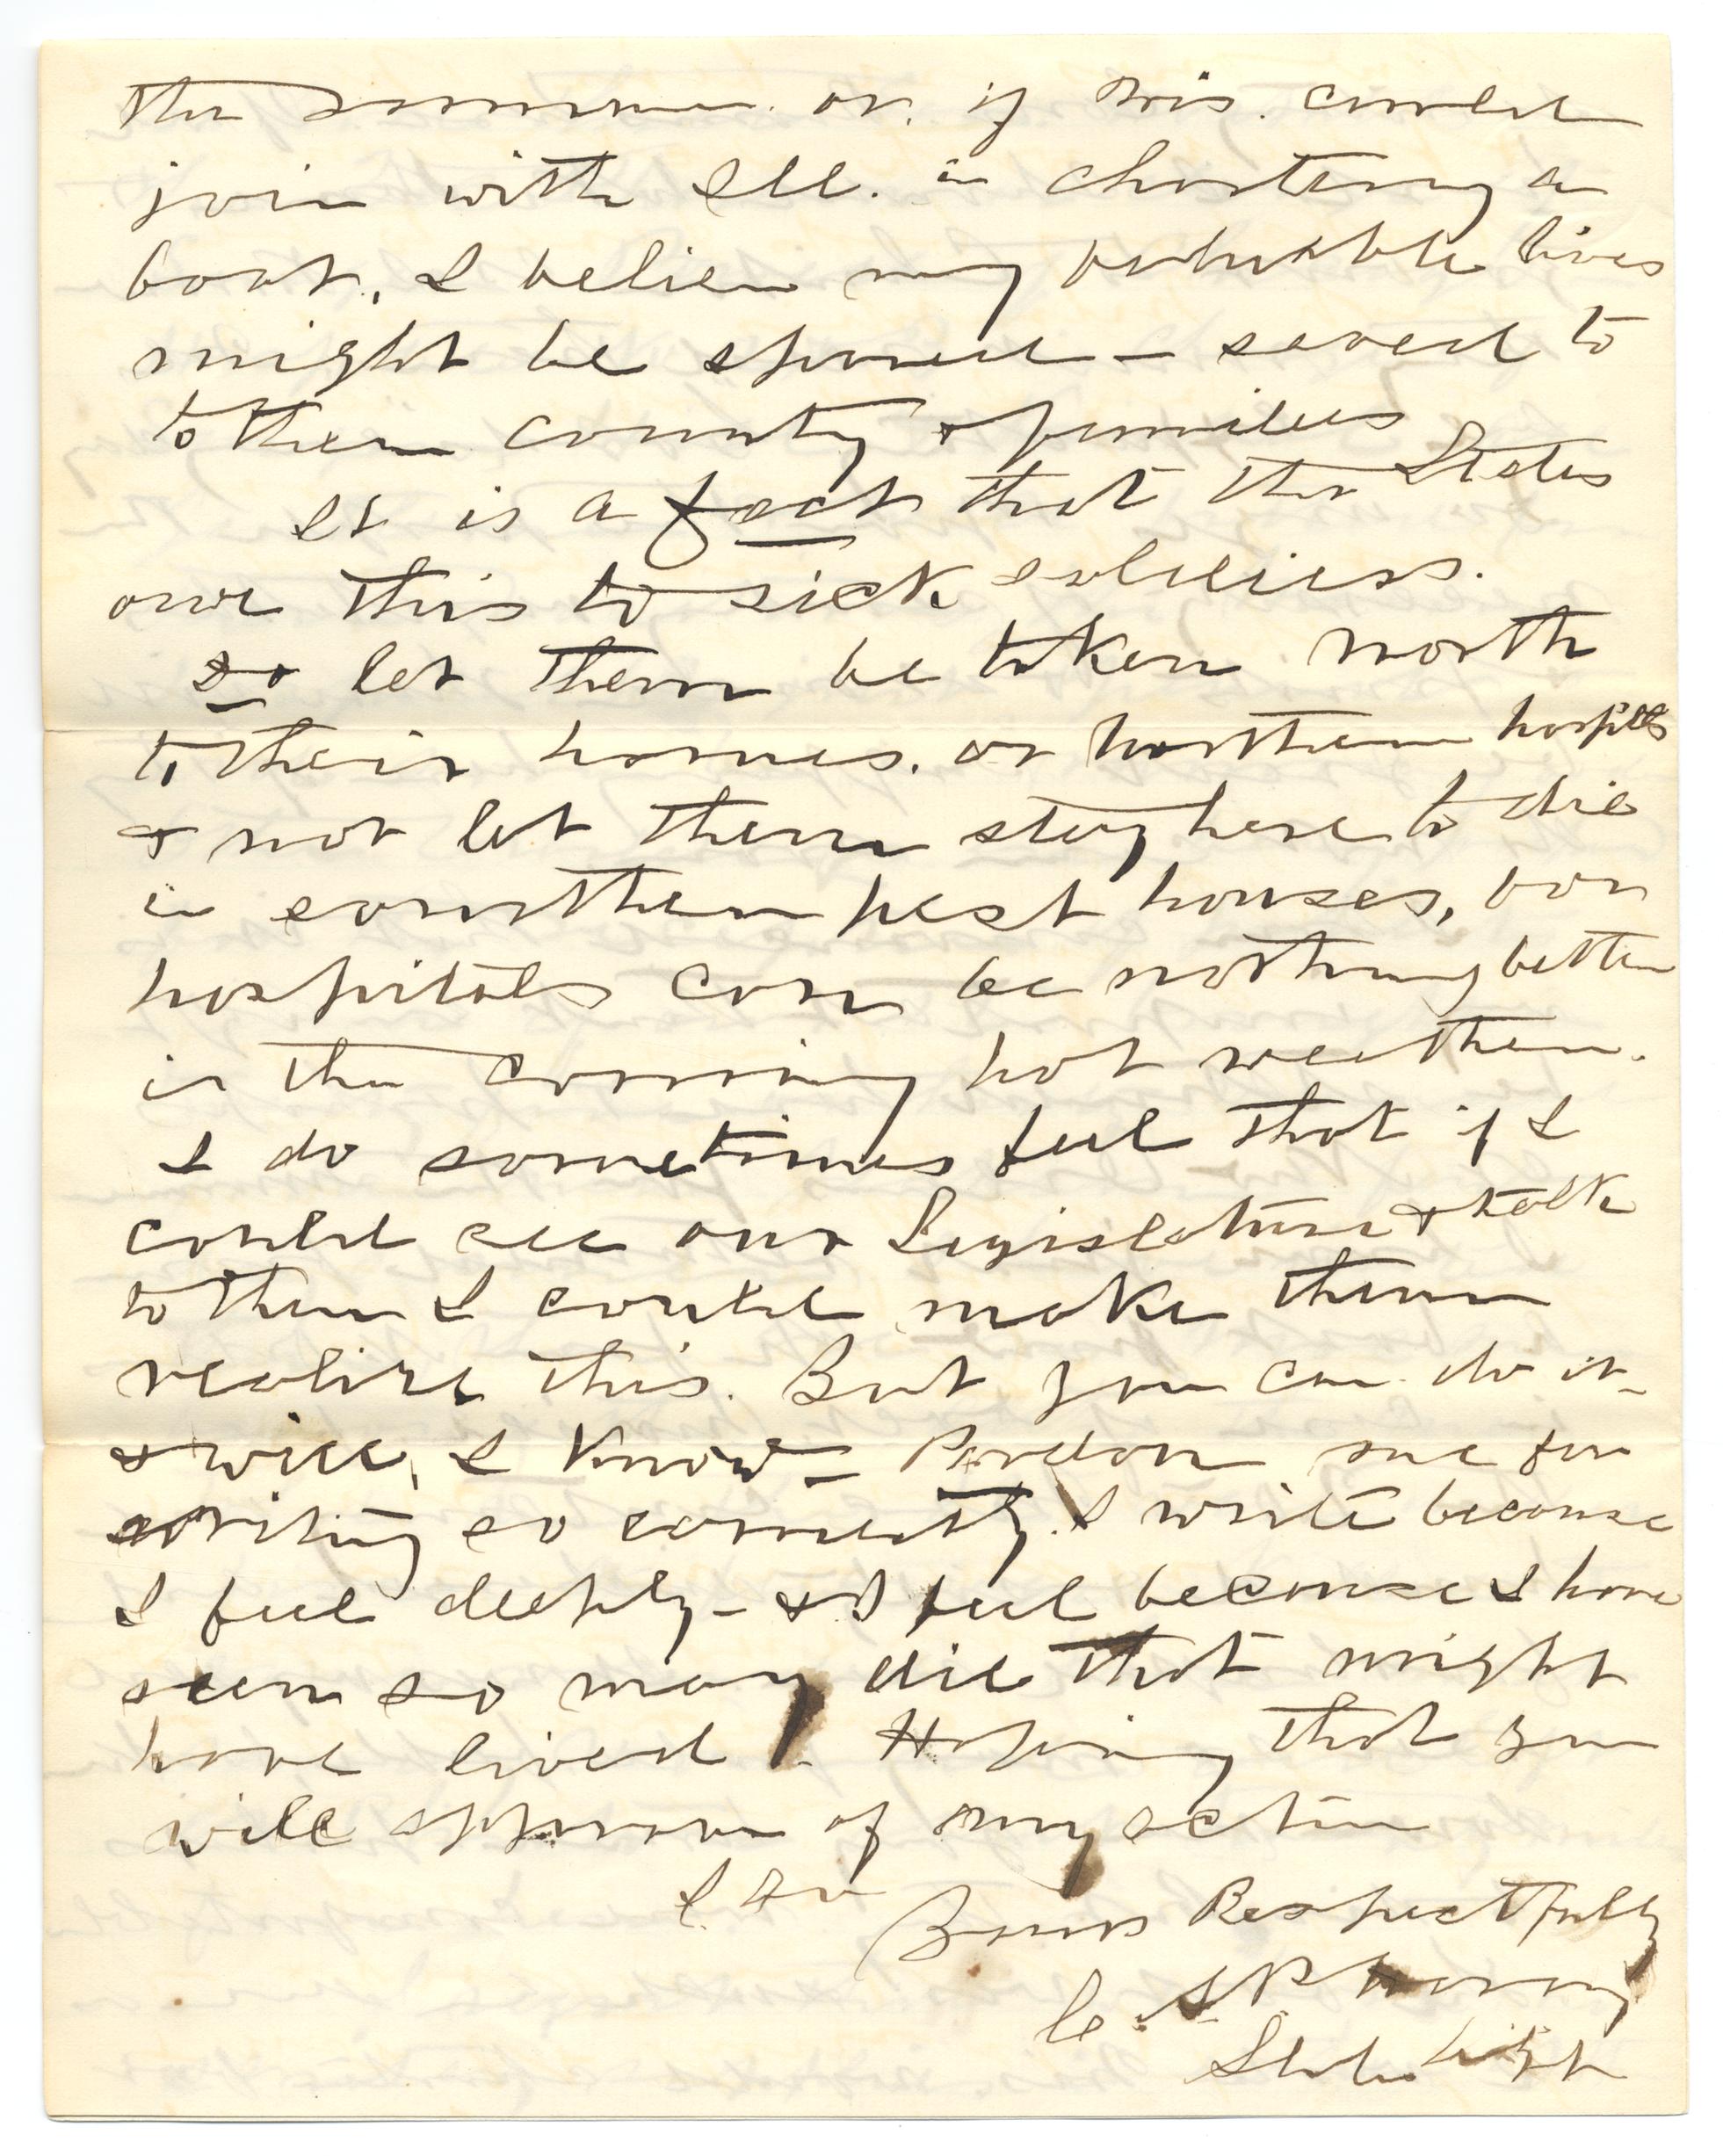 the summer. or. if Wis. could
join with Ill. in chartering a
boat, I believe many valuable lives
might be spared - saved to
to their country & families
It is a fact that the States
owe this to sick soldiers.
so let them be taken north
to their homes. or northern hospitls
& not let them stay here to die
in southern pest houses, for
hospitals can be nothing better
in the coming hot weather.
I do sometimes feel that if I
could see our Legislature & talk
to them I could make them
realize this. But you can do it -
& will, I know - Pardon me for
writing so earnestly. I write because
I feel deeply - & I feel because I have
seen so many die that might
have lived - Hoping that you
will approve of my action
I am
Yours Respectfully
C. A. P. Harvey
State